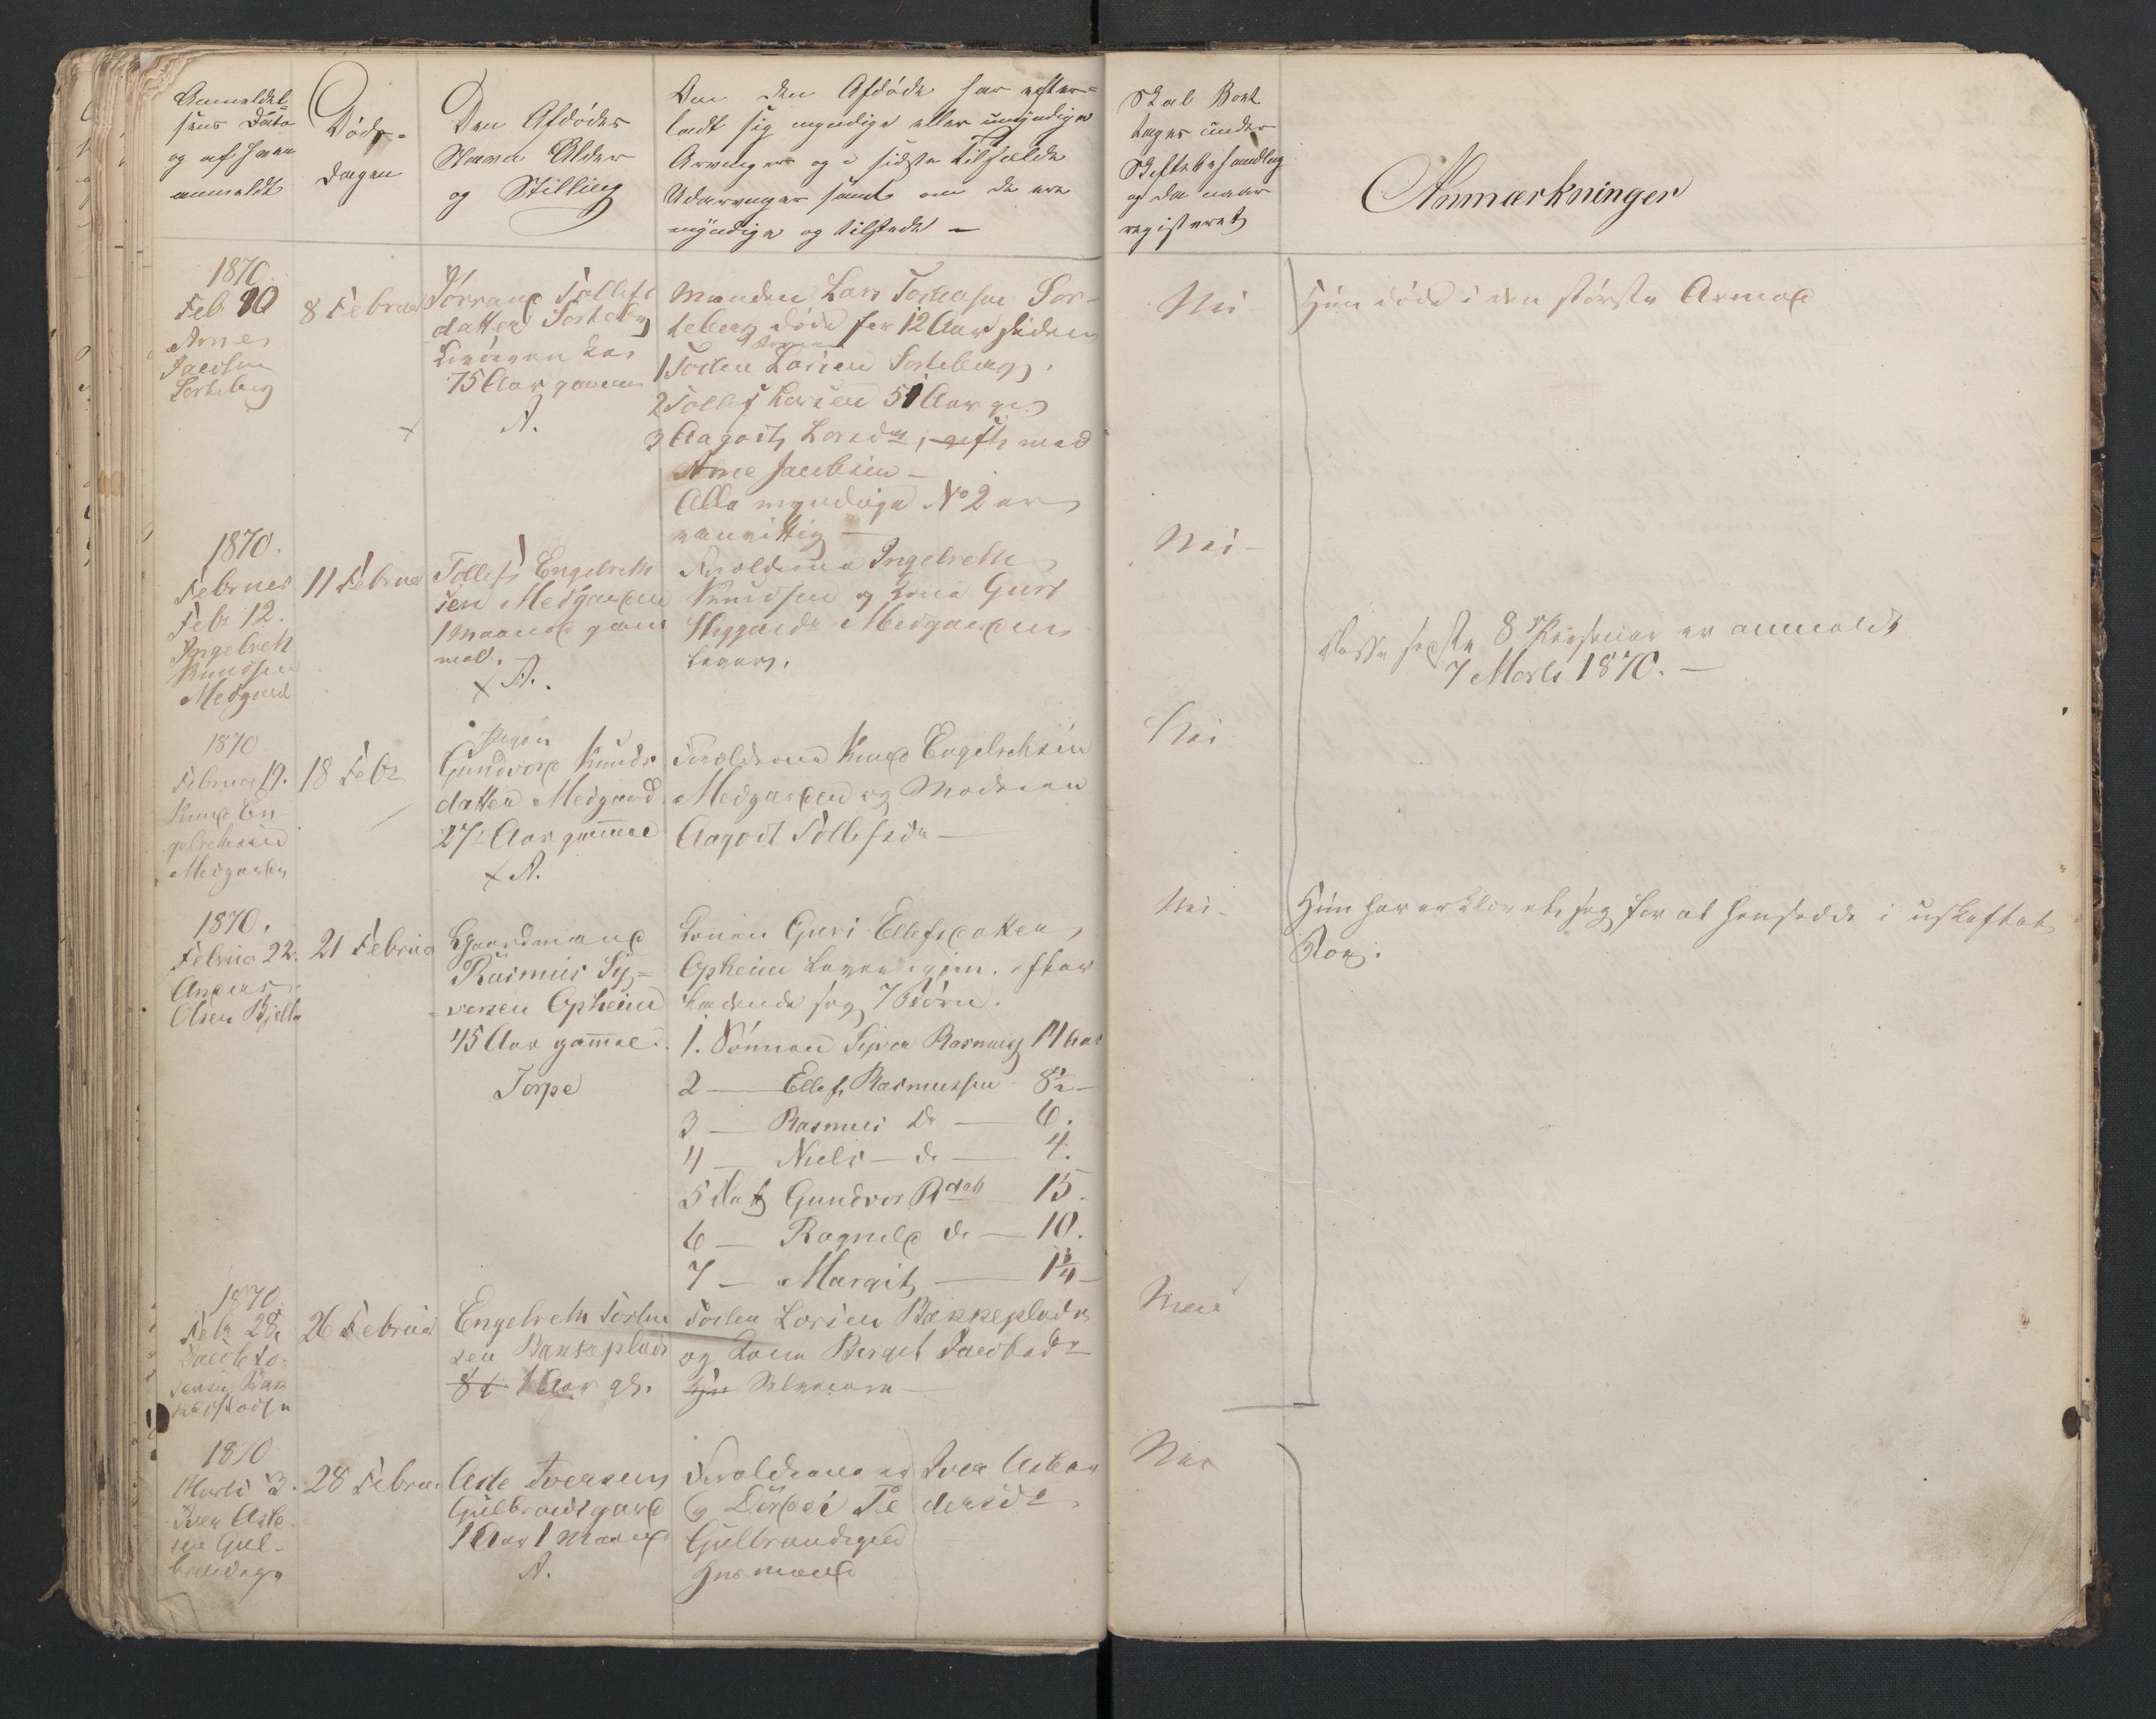 Anmeldel-
sens Dato
og af hvem
anmeldt
Døds-
dagen
Den Afdødes
Navn Alder
og Stilling
Om den Afdøde har efter-
ladt sig myndige eller umyndige
Arvinger og i sidste Tilfælde
Udarvinger samt om de ere
myndige og tilstede —
Skal Boet
tages under
Skiftebehandling
og da naar
registeret
Anmærkninger
1870
Feb 10
Arne
Jacobsen
Sorteberg
8 Februar
Tollefs
datter Sorteberg
75 Aar gammel
A.
Manden Lars Torstensen Sor-
teberg døde for 12 Aar siden
1 Torsten Larsen Sorteberg
2 Tollef Larsen 51 Aar gl
3 Aagodt Larsdtr, gift med
Arne Jacobsen —
Alle myndige No 2 er
vanvittig —
Nei —
Hun døde i den største Armod
1870.
Februar
Feb 12.
Ingelreth
Knudsen
Medgard
11 Februar
Tollef Engelreth
sen Medgarden
1 Maaned gam
mel.
x A.
Forældrene Ingelreth
Knudsen og Kone Guri
Medgarden
Lever.
Nei —
Disse sidste 8 Personer er anmeldt
7 Marts 1870. —
1870
Februar 19.
Knud En-
gelrethsen
Medgarden
18 Feb
Pigen
Gundvor Knuds
datter Medgard
27 Aar gammel
x A.
Forældrene Knud Engelrethsen
Medgarden og Moderen
Aagodt Tollefsdr —
Nei
1870.
Februar 22.
Anders
Olsen
21 Februar
Gaardmand
Rasmus Sy-
versen Opheim
45 Aar gammel.
Torpe
Konen Guri Ellefsdatter
Opheim Lever igjen. efter
ladende sig 7 Børn.
1. Sønnen Siver Rasmus 14 Aar
2 — Ellef Rasmussen 8½ —
3 — Rasmus do — 6.
4 — Niels — do — 4.
5 Dat Gundvor Rdatt 15.
6 — Ragnild do — 10.
7 — Margit — 1¼ —
Nei —
Hun har erklæret sig for at hensidde i uskiftet
Boe.
1870
Feb 28.
26 Februar
Engelreth Torsten
sen Bakkeplads
1 Aar gl.
Torsten Larsen Bakkeplads
og Kone Berget Jacobsdr
Nei
1870
Marts 3.
Iver Aste-
sen Gul-
brandsga
28 Februar
Aste Iversen
Gulbrandsgard
1 Aar 1 Maaned
A.
Forældrene er Iver Astesen
og Pedersdr
Gulbrandsgard
Husmand
Nei